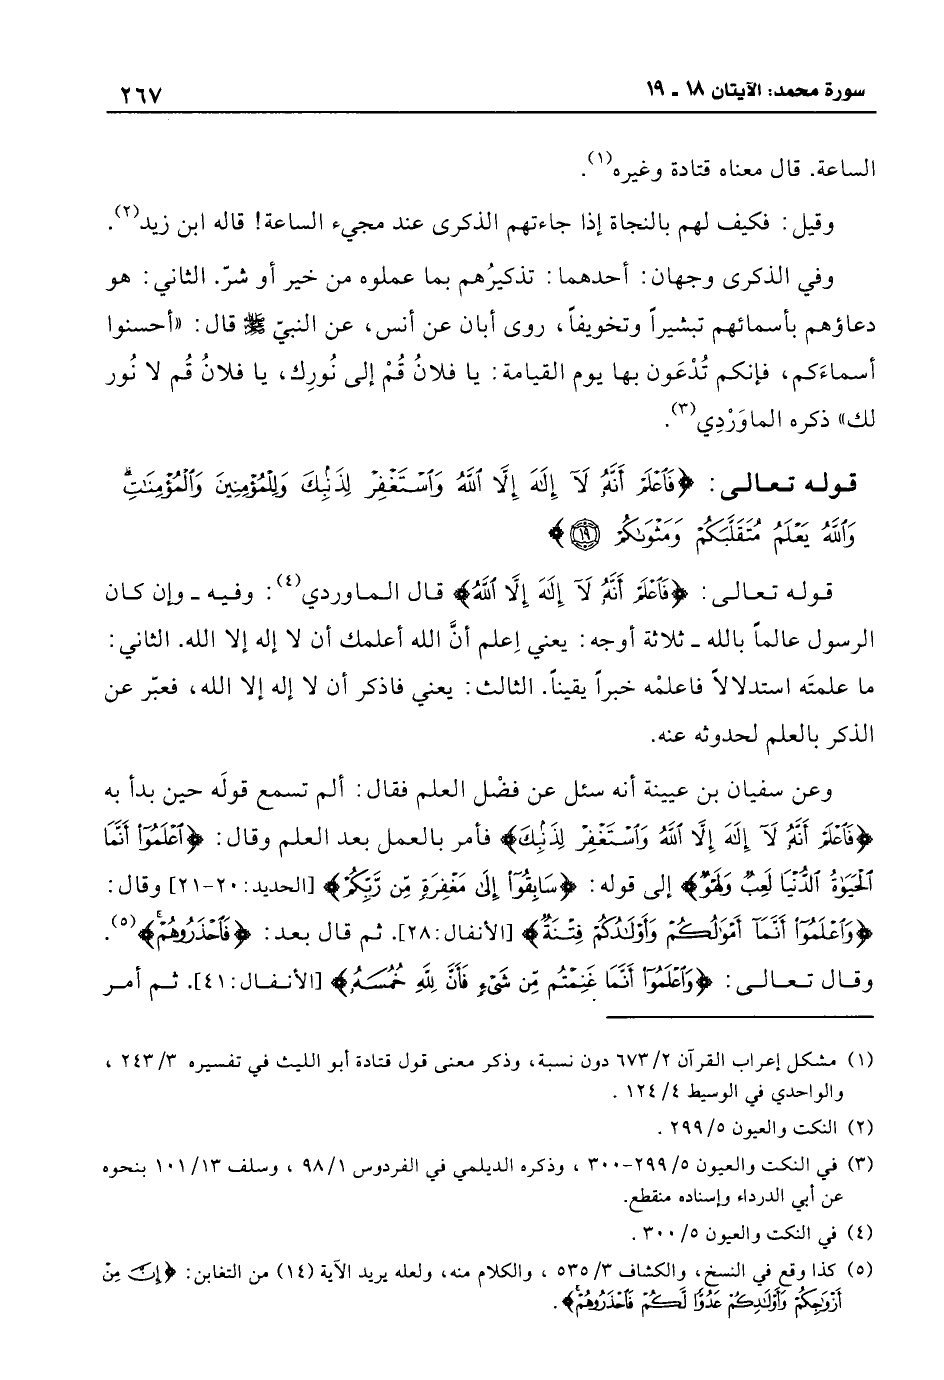 سورة محمد: الآيتان ١٨ - ١٩
٢٦٧
الساعة. قال معناه قتادة وغيره(١).
وقيل: فكيف لهم بالنجاة إذا جاءتهم الذكرى عند مجيء الساعة! قاله ابن زيد(٢).
وفي الذكرى وجهان: أحدهما: تذكيرُهم بما عملوه من خير أو شرّ. الثاني: هو
دعاؤهم بأسمائهم تبشيراً وتخويفاً، روى أبان عن أنس، عن النبيّ ﷺ قال: «أحسنوا
أسماءَكم، فإنكم تُدْعَون بها يوم القيامة: يا فلانُ قُمْ إلى نُورِك، يا فلانُ قُم لا نُور
لك» ذكره الماوَرْدِي(٣).
قوله تعالى: ﴿فَٱعْلَمْ أَنَّهُۥ لَآ إِلَٰهَ إِلَّا ٱللَّهُ وَٱسْتَغْفِرْ لِذَنۢبِكَ وَلِلْمُؤْمِنِينَ وَٱلْمُؤْمِنَٰتِۗ
وَٱللَّهُ يَعْلَمُ مُتَقَلَّبَكُمْ وَمَثْوَىٰكُمْ ١٩﴾
قوله تعالى: ﴿فَٱعْلَمْ أَنَّهُۥ لَآ إِلَٰهَ إِلَّا ٱللَّهُ﴾ قال الماوردي(٤): وفيه ـ وإن كان
الرسول عالماً بالله ـ ثلاثة أوجه: يعني اِعلم أنَّ الله أعلمك أن لا إله إلا الله. الثاني:
ما علمتَه استدلالاً فاعلمْه خبراً يقيناً. الثالث: يعني فاذكر أن لا إله إلا الله، فعبّر عن
الذكر بالعلم لحدوثه عنه.
وعن سفيان بن عيينة أنه سئل عن فضْل العلم فقال: ألم تسمع قولَه حين بدأ به
﴿فَٱعْلَمْ أَنَّهُۥ لَآ إِلَٰهَ إِلَّا ٱللَّهُ وَٱسْتَغْفِرْ لِذَنۢبِكَ﴾ فأمر بالعمل بعد العلم وقال: ﴿ٱعْلَمُوٓا۟ أَنَّمَا
ٱلْحَيَوٰةُ ٱلدُّنْيَا لَعِبٌ وَلَهْوٌ﴾ إلى قوله: ﴿سَابِقُوٓا۟ إِلَىٰ مَغْفِرَةٍ مِّن رَّبِّكُمْ﴾ [الحديد:٢٠-٢١] وقال:
﴿وَٱعْلَمُوٓا۟ أَنَّمَآ أَمْوَٰلُكُمْ وَأَوْلَٰدُكُمْ فِتْنَةٌ﴾ [الأنفال:٢٨]. ثم قال بعد: ﴿فَٱحْذَرُوهُمْۚ﴾(٥).
وقال تعالى: ﴿وَٱعْلَمُوٓا۟ أَنَّمَا غَنِمْتُم مِّن شَىْءٍ فَأَنَّ لِلَّهِ خُمُسَهُۥ﴾ [الأنفال:٤١]. ثم أمر
(١) مشكل إعراب القرآن ٢/ ٦٧٣ دون نسبة، وذكر معنى قول قتادة أبو الليث في تفسيره ٣/ ٢٤٣ ،
والواحدي في الوسيط ٤/ ١٢٤ .
(٢) النكت والعيون ٥/ ٢٩٩ .
(٣) في النكت والعيون ٥/ ٢٩٩-٣٠٠ ، وذكره الديلمي في الفردوس ١/ ٩٨ ، وسلف ١٣/ ١٠١ بنحوه
عن أبي الدرداء وإسناده منقطع.
(٤) في النكت والعيون ٥/ ٣٠٠ .
(٥) كذا وقع في النسخ، والكشاف ٣/ ٥٣٥ ، والكلام منه، ولعله يريد الآية (١٤) من التغابن: ﴿إِنَّ مِنْ
أَزْوَٰجِكُمْ وَأَوْلَٰدِكُمْ عَدُوًّا لَّكُمْ فَٱحْذَرُوهُمْۚ﴾.